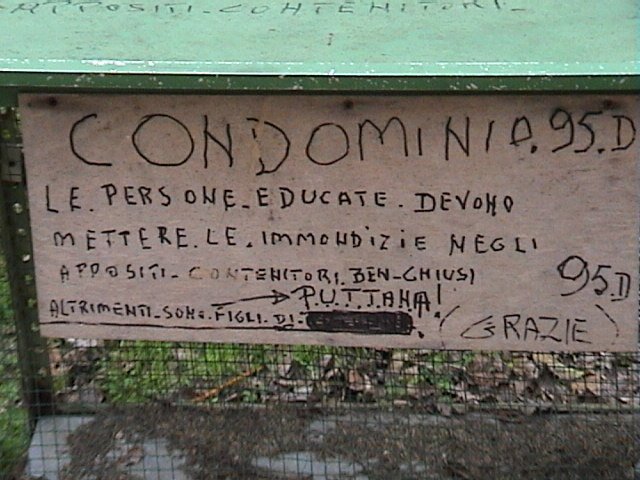 APPOSITI-CONTENITORI-
CONDOMINIO.95.D
LE.PERSONE-EDUCATE.DEVONO
METTERE.LE.IMMONDIZIE NEGLI
APPOSITI-CONTENITORI.BEN-CHIUSI
95.D
P.U.T.TANA!
ALTRIMENTI-SONO.FIGLI.DI.
(GRAZIE)